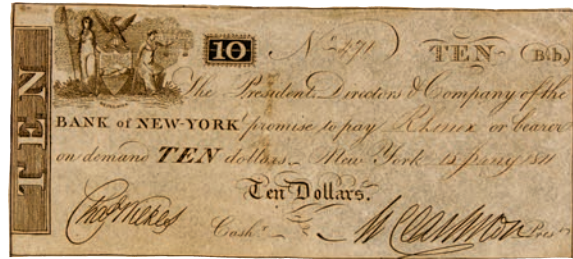 TEN
10 No 471 TEN B.b.
The President, Directors & Company of the
BANK of NEW-YORK promise to pay or bearer
on demand TEN dollars. New York 1811
Ten Dollars.
Chas Wilkes Cashr Prest